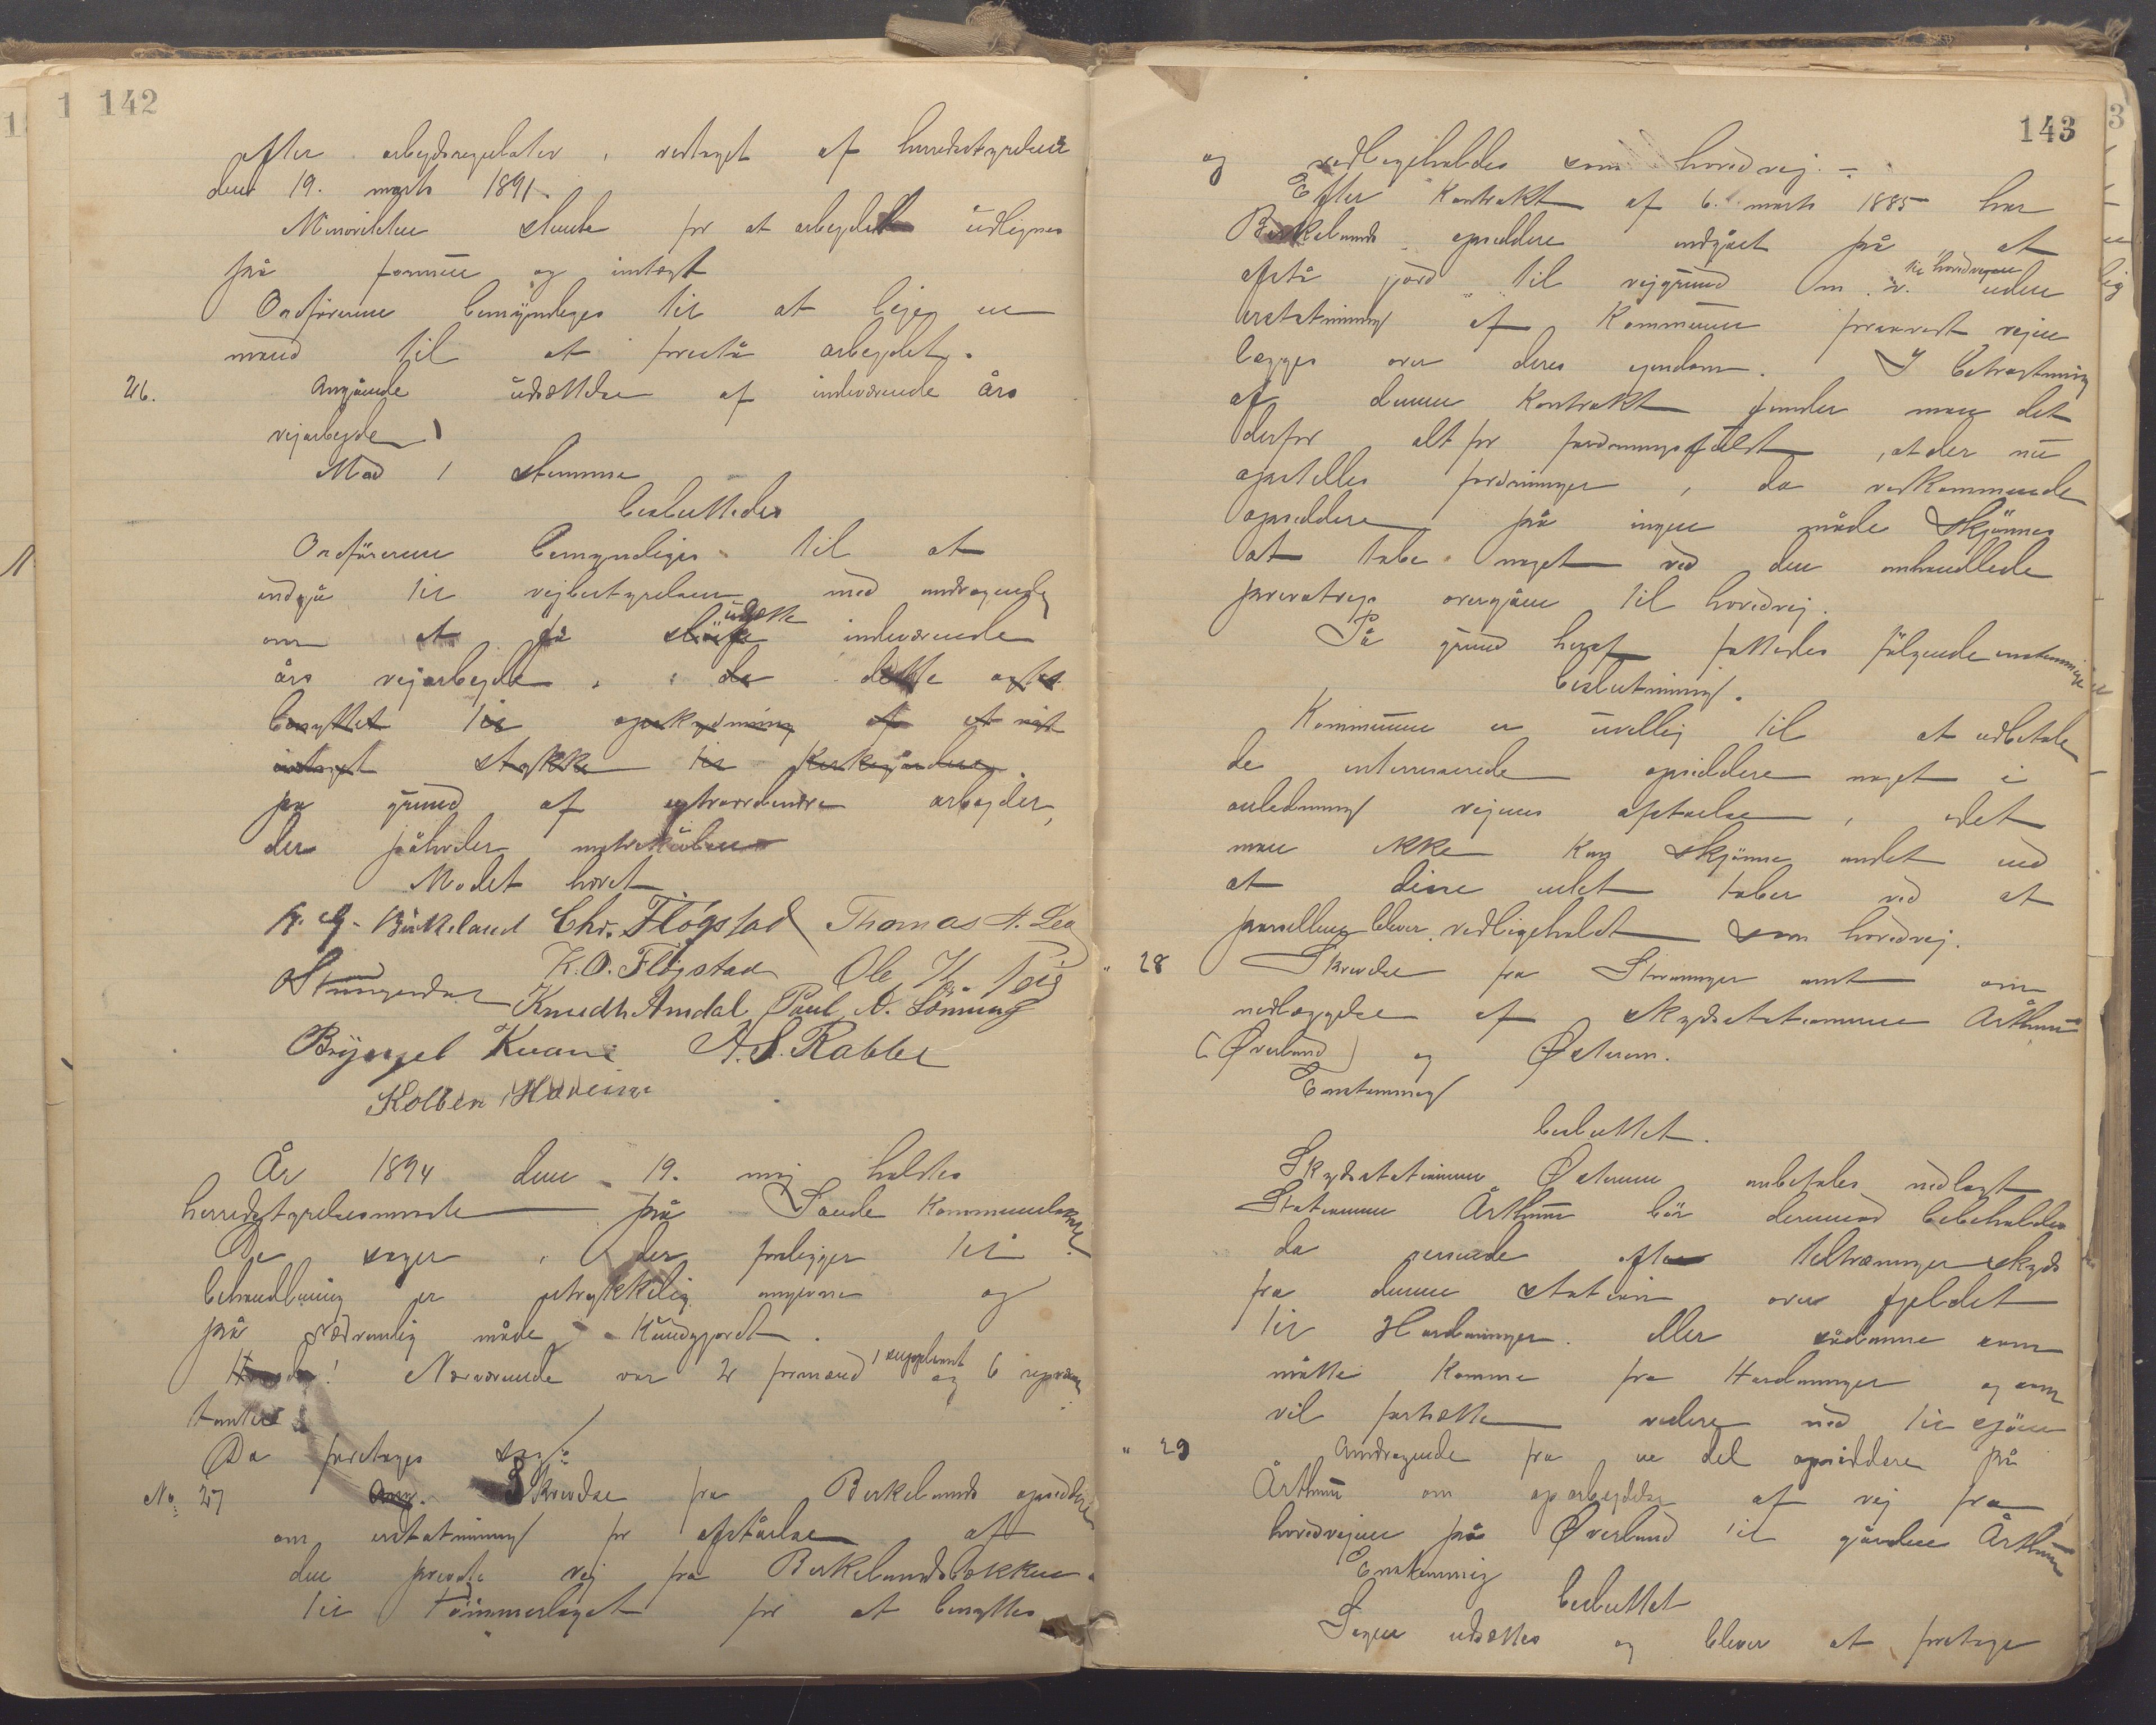 142
efter arbejdsregulativ, vedtaget af herredsstyrelsen
den 19. marts 1891.
Minoriteten stemte for at arbejdet udlignes
på formue og indtægt
Ordföreren bemyndiges til at leje en
mand til at forestå arbejdet.
26. Angående udsættelse af indeværende års
vejarbejde
Mod 1 stemme
besluttedes
Ordföreren bemyndiges til at
indgå til vejbestyrelsen med andragende
om at få slöife udsætte indeværende
års vejarbejde, da dette agtes
benyttet til opskydning af et nyt
indtaget stykke til kirkegården
på grund af extraordinære arbejder,
der påhviler matrikulen
Mødet hævet
Birkeland Chr. Flögstad Thomas H. Lea
K. O. Flögstad Ole
Knud Amdal Paul A. Lönning
Brynjel Kvame A. S. Rabbe
Kolben Höveim
År 1894 den 19. maj holdtes
herredsstyrelsesmøde på Sande Kommunelokale
De sager, der foreligger til
behandling er udtrykkelig angivne og
på sædvanlig måde kundgjordt.
Nærværende var 2 formænd 1 suppleant og 6 repræsen
tanter
Da foretoges sag:
No. 27 Ang. Skrivelse fra Birkelands opsiddere
om erstatning for afståelse af
den private vej fra Birkelandsbækken
til Tömmerlaget for at benyttes
143
og vedligeholdes som hovedvej. -
Efter Kontrakt af 6. marts 1885 har
Birkelands opsiddere indgået på at
afstå jord til vejgrund m. v. til hovedvejen uden
erstatning af Kommunen forsavidt vejen
lægges over deres ejendom. I betragtning
af denne Kontrakt finder man det
derfor alt for fordringsfuldt, at der nu
opstilles fordringer, da vedkommende
opsiddere på ingen måde skjønnes
at tabe noget ved den omhandlede
privatvejs overgåen til hovedvej.
På grund heraf fattedes fölgende enstemmige
beslutning.
Kommunen er uvillig til at udbetale
de interesserede opsiddere noget i
anledning vejens afståelse, idet
man ikke kan skjønne andet end
at disse intet taber ved at
parsellen bliver vedligeholdt som hovedvej.
" 28 Skrivelse fra Stavanger amt om
nedlæggelse af skydsstationerne Årthun
(Øverland) og Østerem.
Enstemmig
besluttet.
Skydsstationen Østerem anbefales nedlagt
Stationen Årthun bör derimod bibeholdes
da rejsende ofte tiltrænger skyds
fra denne station over fjeldet
til Hardanger eller sådanne som
måtte komme fra Hardanger og som
vil fortsætte videre ned til sjöen
" 29 Andragende fra en del opsiddere på
Årthun om oparbejdelse af vej fra
hovedvejen på Øverland til gården Årthun
Enstemmig
besluttet
Sagen udsættes og bliver at foretage